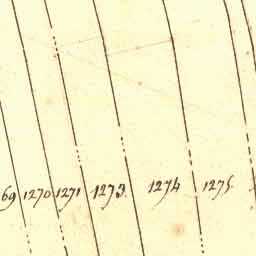 69 1270 1271 1273. 1274 1275.